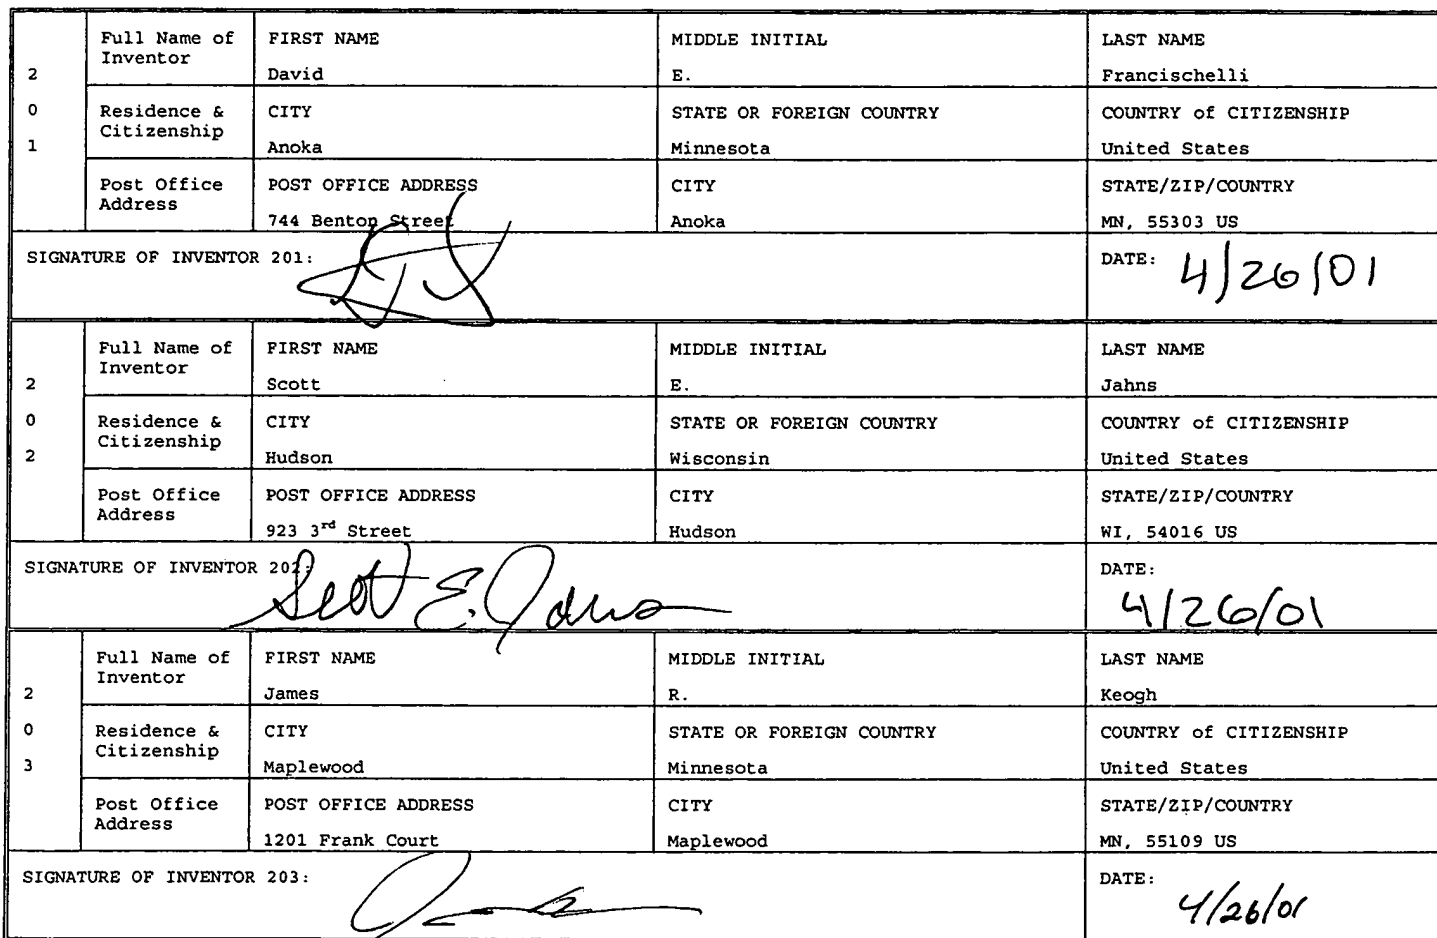 2 0 1
Full Name of Inventor
FIRST NAME
David
MIDDLE INITIAL
E.
LAST NAME
Francischelli
Residence & Citizenship
CITY
Anoka
STATE OR FOREIGN COUNTRY
Minnesota
COUNTRY of CITIZENSHIP
United States
Post Office Address
POST OFFICE ADDRESS
744 Benton Street
CITY
Anoka
STATE/ZIP/COUNTRY
MN, 55303 US
SIGNATURE OF INVENTOR 201:
DATE: 4/26/01
2 0 2
Full Name of Inventor
FIRST NAME
Scott
MIDDLE INITIAL
E.
LAST NAME
Jahns
Residence & Citizenship
CITY
Hudson
STATE OR FOREIGN COUNTRY
Wisconsin
COUNTRY of CITIZENSHIP
United States
Post Office Address
POST OFFICE ADDRESS
923 3rd Street
CITY
Hudson
STATE/ZIP/COUNTRY
WI, 54016 US
SIGNATURE OF INVENTOR 202: Scott E. Jahns
DATE:
4/26/01
2 0 3
Full Name of Inventor
FIRST NAME
James
MIDDLE INITIAL
R.
LAST NAME
Keogh
Residence & Citizenship
CITY
Maplewood
STATE OR FOREIGN COUNTRY
Minnesota
COUNTRY of CITIZENSHIP
United States
Post Office Address
POST OFFICE ADDRESS
1201 Frank Court
CITY
Maplewood
STATE/ZIP/COUNTRY
MN, 55109 US
SIGNATURE OF INVENTOR 203:
DATE:
4/26/01